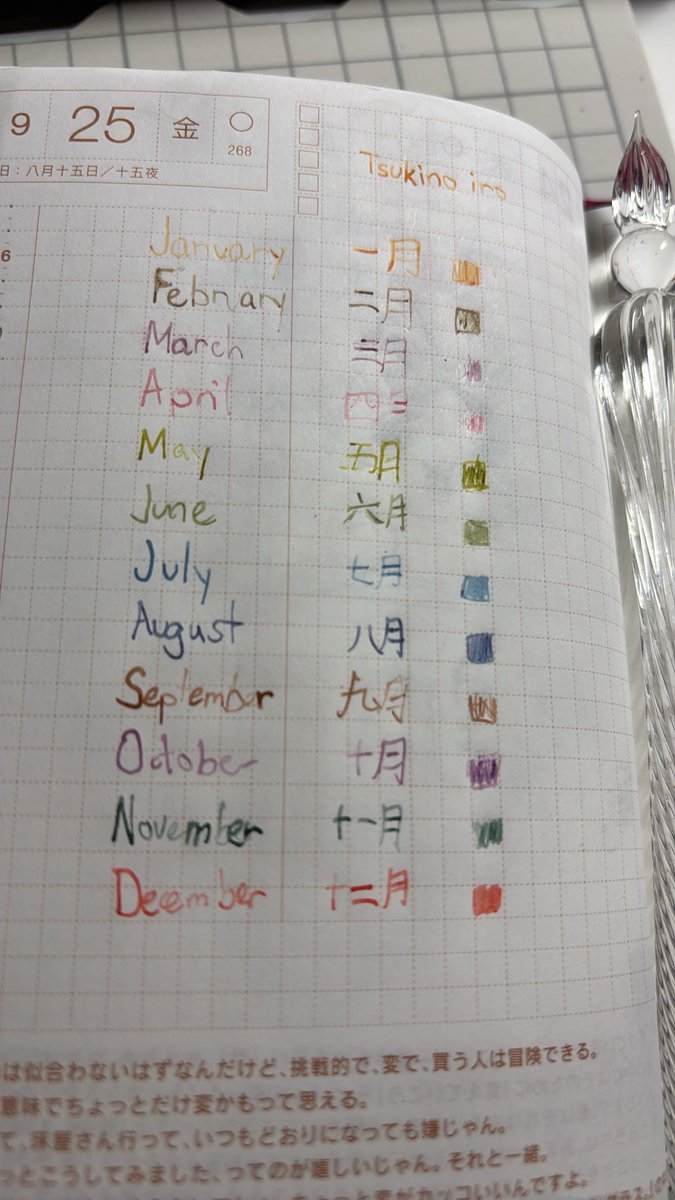 9 25 金 ○
268
日：八月十五日／十五夜
Tsukino iro
6
January 一月
Febnary 二月
March 三月
April 四三
May 五月
June 六月
July 七月
August 八月
September 九月
October 十月
November 十一月
December 十二月
は似合わないはずなんだけど、挑戦的で、変で、買う人は冒険できる。
意味でちょっとだけ変かもって思える。
て、床屋さん行って、いつもどおりになっても嫌じゃん。
っとこうしてみました、ってのが嬉しいじゃん。それと一緒。
ちょっと変がカッコいいんですよ。